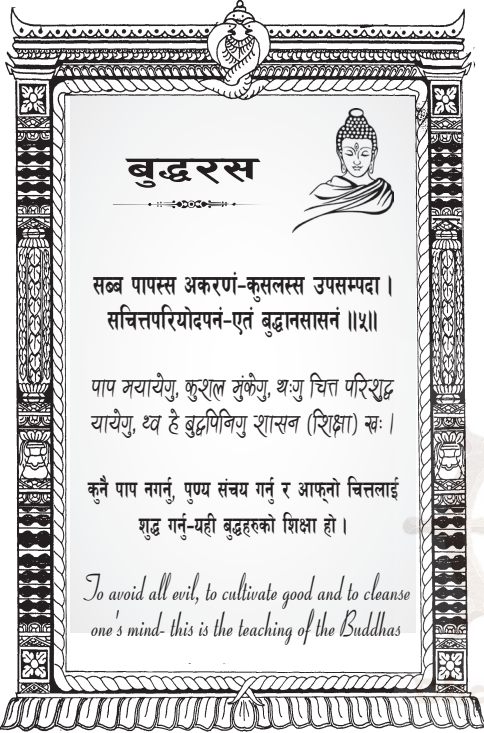 बुद्धरस
सब्ब पापस्स अकरणं-कुसलस्स उपसम्पदा ।
सचित्तपरियोदपनं-एतं बुद्धानसासनं ॥५॥
पाप मयायेगु, कुशल मुंकेगु, थःगु चित्त परिशुद्ध
यायेगु, थ्व हे बुद्धपिनिगु शासन (शिक्षा) खः ।
कुनै पाप नगर्नु, पुण्य संचय गर्नु र आफ्नो चित्तलाई
शुद्ध गर्नु-यही बुद्धहरुको शिक्षा हो ।
To avoid all evil, to cultivate good and to cleanse
one's mind- this is the teaching of the Buddhas